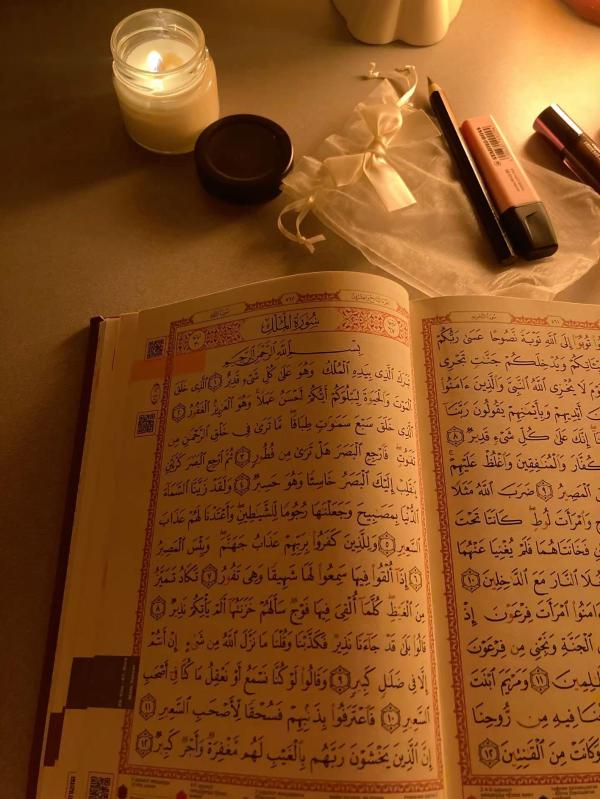 سورة التحريم
تُوبُوٓا۟ إِلَى ٱللَّهِ تَوْبَةً نَّصُوحًا عَسَىٰ رَبُّكُمْ
وَيُدْخِلَكُمْ جَنَّٰتٍ تَجْرِى
لَا يُخْزِى ٱللَّهُ ٱلنَّبِىَّ وَٱلَّذِينَ ءَامَنُوا۟
أَيْدِيهِمْ وَبِأَيْمَٰنِهِمْ يَقُولُونَ رَبَّنَآ
إِنَّكَ عَلَىٰ كُلِّ شَىْءٍ قَدِيرٌ ٨
وَٱلْمُنَٰفِقِينَ وَٱغْلُظْ عَلَيْهِمْ
ٱلْمَصِيرُ ٩ ضَرَبَ ٱللَّهُ مَثَلًا
وَٱمْرَأَتَ لُوطٍ كَانَتَا تَحْتَ
فَخَانَتَاهُمَا فَلَمْ يُغْنِيَا عَنْهُمَا
ٱلنَّارَ مَعَ ٱلدَّٰخِلِينَ ١٠
ٱمْرَأَتَ فِرْعَوْنَ إِذْ
ٱلْجَنَّةِ وَنَجِّنِى مِن فِرْعَوْنَ
١١ وَمَرْيَمَ ٱبْنَتَ
فِيهِ مِن رُّوحِنَا
وَكَانَتْ مِنَ ٱلْقَٰنِتِينَ ١٢
سُورَةُ المُلْكِ
بِسْمِ ٱللَّهِ ٱلرَّحْمَٰنِ ٱلرَّحِيمِ
تَبَٰرَكَ ٱلَّذِى بِيَدِهِ ٱلْمُلْكُ وَهُوَ عَلَىٰ كُلِّ شَىْءٍ قَدِيرٌ ١ ٱلَّذِى خَلَقَ
ٱلْمَوْتَ وَٱلْحَيَوٰةَ لِيَبْلُوَكُمْ أَيُّكُمْ أَحْسَنُ عَمَلًا وَهُوَ ٱلْعَزِيزُ ٱلْغَفُورُ ٢
ٱلَّذِى خَلَقَ سَبْعَ سَمَٰوَٰتٍ طِبَاقًا مَّا تَرَىٰ فِى خَلْقِ ٱلرَّحْمَٰنِ مِن
تَفَٰوُتٍ فَٱرْجِعِ ٱلْبَصَرَ هَلْ تَرَىٰ مِن فُطُورٍ ٣ ثُمَّ ٱرْجِعِ ٱلْبَصَرَ كَرَّتَيْنِ
يَنقَلِبْ إِلَيْكَ ٱلْبَصَرُ خَاسِئًا وَهُوَ حَسِيرٌ ٤ وَلَقَدْ زَيَّنَّا ٱلسَّمَآءَ
ٱلدُّنْيَا بِمَصَٰبِيحَ وَجَعَلْنَٰهَا رُجُومًا لِّلشَّيَٰطِينِ وَأَعْتَدْنَا لَهُمْ عَذَابَ
ٱلسَّعِيرِ ٥ وَلِلَّذِينَ كَفَرُوا۟ بِرَبِّهِمْ عَذَابُ جَهَنَّمَ وَبِئْسَ ٱلْمَصِيرُ
٦ إِذَآ أُلْقُوا۟ فِيهَا سَمِعُوا۟ لَهَا شَهِيقًا وَهِىَ تَفُورُ ٧ تَكَادُ تَمَيَّزُ
مِنَ ٱلْغَيْظِ كُلَّمَآ أُلْقِىَ فِيهَا فَوْجٌ سَأَلَهُمْ خَزَنَتُهَآ أَلَمْ يَأْتِكُمْ نَذِيرٌ ٨
قَالُوا۟ بَلَىٰ قَدْ جَآءَنَا نَذِيرٌ فَكَذَّبْنَا وَقُلْنَا مَا نَزَّلَ ٱللَّهُ مِن شَىْءٍ إِنْ أَنتُمْ
إِلَّا فِى ضَلَٰلٍ كَبِيرٍ ٩ وَقَالُوا۟ لَوْ كُنَّا نَسْمَعُ أَوْ نَعْقِلُ مَا كُنَّا فِىٓ أَصْحَٰبِ
ٱلسَّعِيرِ ١٠ فَٱعْتَرَفُوا۟ بِذَنۢبِهِمْ فَسُحْقًا لِّأَصْحَٰبِ ٱلسَّعِيرِ ١١
إِنَّ ٱلَّذِينَ يَخْشَوْنَ رَبَّهُم بِٱلْغَيْبِ لَهُم مَّغْفِرَةٌ وَأَجْرٌ كَبِيرٌ ١٢